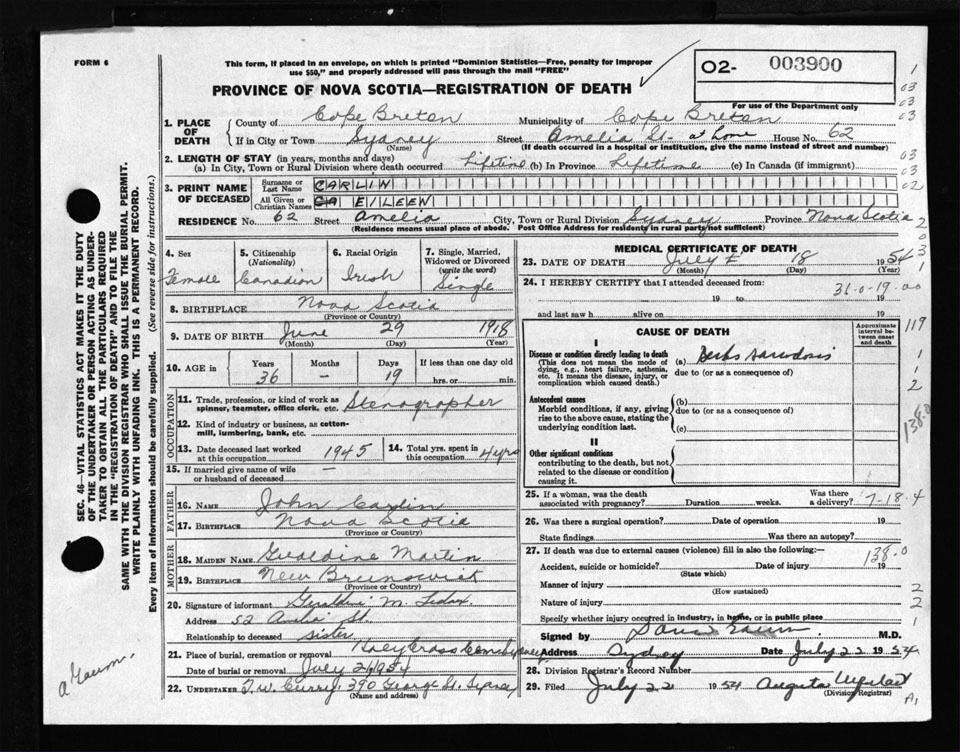 FORM 6
This form, if placed in an envelope, on which is printed "Dominion Statistics—Free, penalty for improper
use $50," and properly addressed will pass through the mail "FREE"
02- 003900
For use of the Department only
PROVINCE OF NOVA SCOTIA—REGISTRATION OF DEATH
1. PLACE OF DEATH
County of Cape Breton Municipality of Cape Breton
If in City or Town Sydney Street Amelia St. at home House No. 62
(Name) (If death occurred in a hospital or institution, give the name instead of street and number)
2. LENGTH OF STAY (in years, months and days)
(a) In City, Town or Rural Division where death occurred Lifetime (b) In Province Lifetime (c) In Canada (if immigrant)
3. PRINT NAME OF DECEASED
Surname or Last Name CARLIN
All Given or Christian Names EILEEN
RESIDENCE No. 62 Street Amelia City, Town or Rural Division Sydney Province Nova Scotia
(Residence means usual place of abode. Post Office Address for residents in rural parts not sufficient)
4. Sex Female
5. Citizenship (Nationality) Canadian
6. Racial Origin Irish
7. Single, Married, Widowed or Divorced (write the word) Single
8. BIRTHPLACE Nova Scotia
(Province or Country)
9. DATE OF BIRTH June 29 1918
(Month) (Day) (Year)
10. AGE in Years 36 Months — Days 19 If less than one day old hrs. or min.
OCCUPATION
11. Trade, profession, or kind of work as spinner, teamster, office clerk, etc. Stenographer
12. Kind of industry or business, as cotton-mill, lumbering, bank, etc.
13. Date deceased last worked at this occupation 1945
14. Total yrs. spent in this occupation 4 yrs
15. If married give name of wife or husband of deceased —
FATHER
16. NAME John Carlin
17. BIRTHPLACE Nova Scotia
(Province or Country)
MOTHER
18. MAIDEN NAME Geraldine Martin
19. BIRTHPLACE New Brunswick
(Province or Country)
20. Signature of informant Geraldine M.
Address 52 Amelia St.
Relationship to deceased sister
21. Place of burial, cremation or removal Holy Cross Cem Sydney
Date of burial or removal July 21/1954
22. UNDERTAKER T.W. Curry. 390 George St. Sydney
(Name and address)
MEDICAL CERTIFICATE OF DEATH
23. DATE OF DEATH July 18 1954
(Month) (Day) (Year)
24. I HEREBY CERTIFY that I attended deceased from:
31-0-19-00
19 to 19
and last saw h alive on 19
CAUSE OF DEATH
Approximate interval between onset and death
I
Disease or condition directly leading to death
(This does not mean the mode of dying, e.g., heart failure, asthenia, etc. It means the disease, injury, or complication which caused death.)
(a)
due to (or as a consequence of)
Antecedent causes
Morbid conditions, if any, giving rise to the above cause, stating the underlying condition last.
(b)
due to (or as a consequence of)
(c)
II
Other significant conditions
contributing to the death, but not related to the disease or condition causing it.
25. If a woman, was the death associated with pregnancy? Duration weeks. Was there a delivery? 7-18-4
26. Was there a surgical operation? Date of operation 19
State findings Was there an autopsy?
27. If death was due to external causes (violence) fill in also the following:—
138.0
Accident, suicide or homicide? Date of injury 19
(State which)
Manner of injury
(How sustained)
Nature of injury
Specify whether injury occurred in industry, in home, or in public place
Signed by M.D.
Address Sydney Date July 22 1954
28. Division Registrar's Record Number
29. Filed July 22 1954 Augusta
(Division Registrar)
SEC. 46—VITAL STATISTICS ACT MAKES IT THE DUTY
OF THE UNDERTAKER OR PERSON ACTING AS UNDER-
TAKER TO OBTAIN ALL THE PARTICULARS REQUIRED
IN THE "REGISTRATION OF DEATH" AND TO FILE THE
SAME WITH THE DIVISION REGISTRAR WHO SHALL ISSUE THE BURIAL PERMIT.
WRITE PLAINLY WITH UNFADING INK. THIS IS A PERMANENT RECORD.
Every item of information should be carefully supplied. (See reverse side for instructions.)
1
03
03
03
03
03
02
2
0
3
1
119
1
1
2
138.0
2
2
1
A1